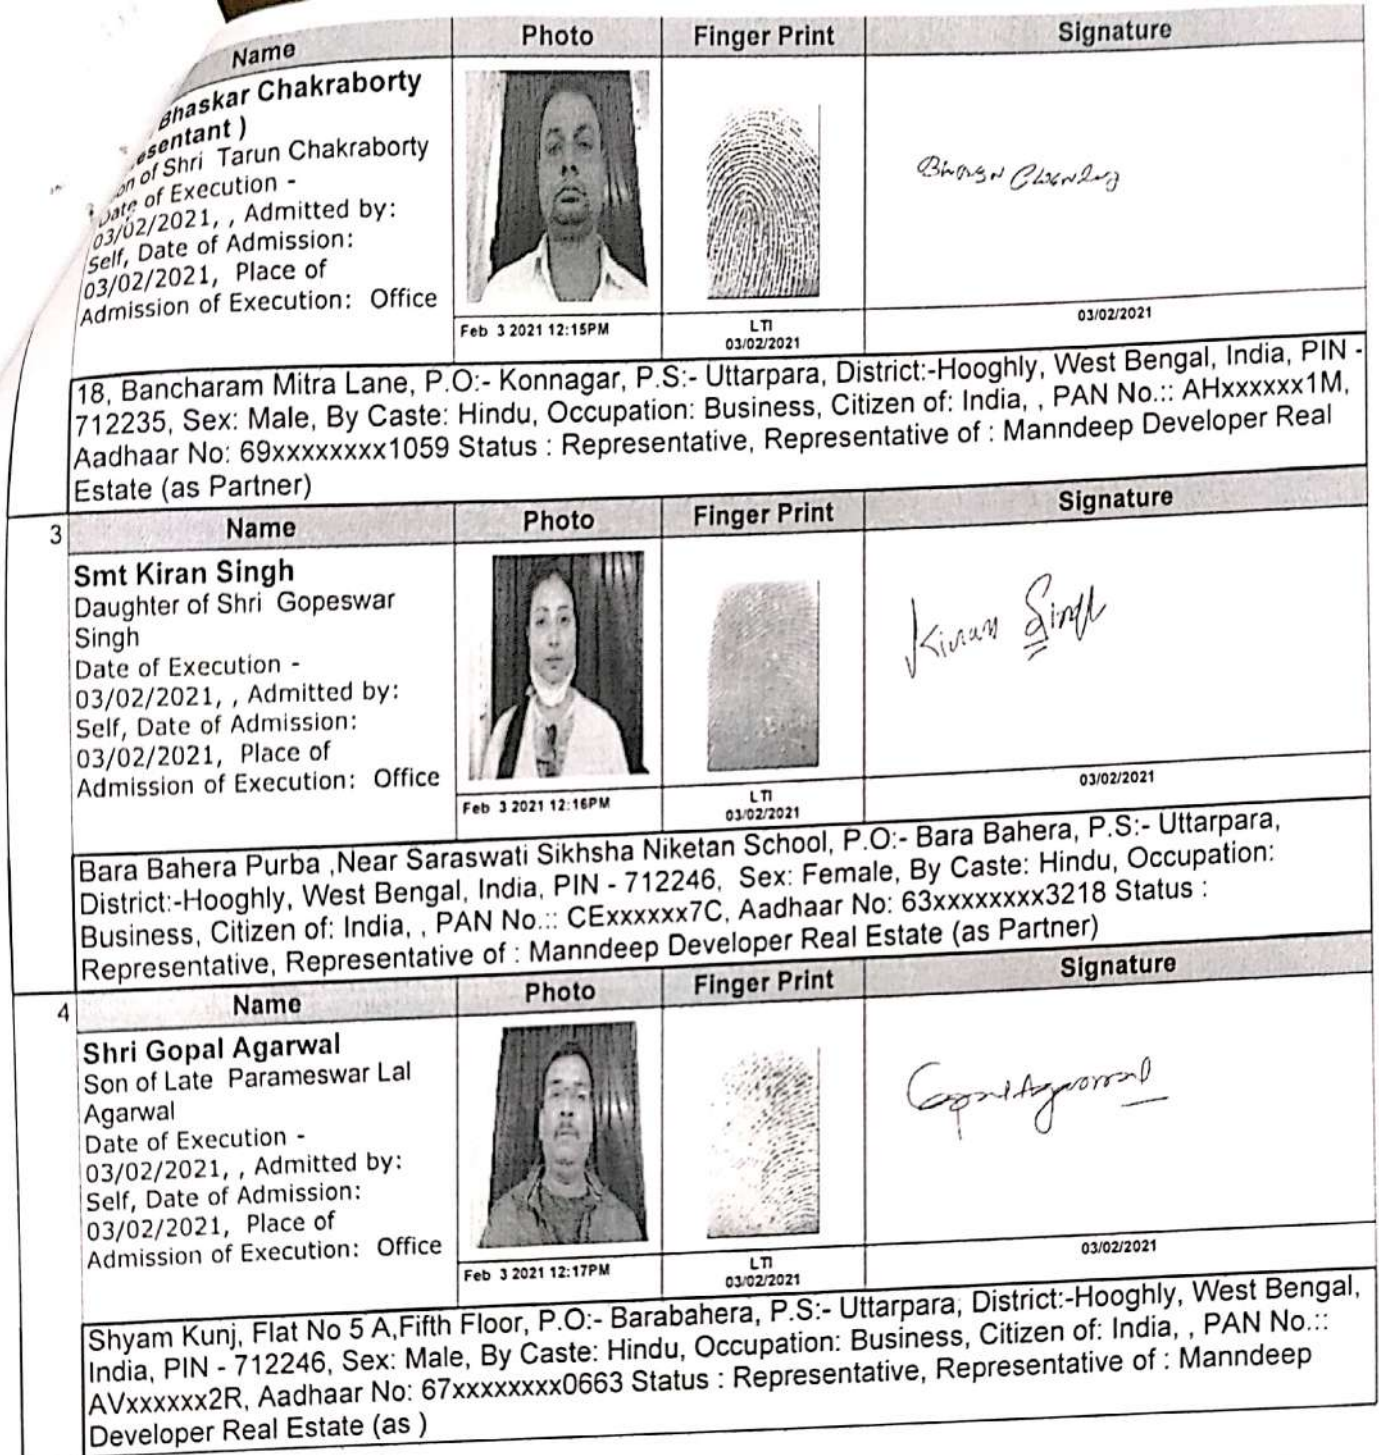 Name Photo Finger Print Signature
Bhaskar Chakraborty
esentant )
on of Shri Tarun Chakraborty
Date of Execution -
03/02/2021, , Admitted by:
Self, Date of Admission:
03/02/2021, Place of
Admission of Execution: Office
Feb 3 2021 12:15PM
LTI
03/02/2021
03/02/2021
18, Bancharam Mitra Lane, P.O:- Konnagar, P.S:- Uttarpara, District:-Hooghly, West Bengal, India, PIN -
712235, Sex: Male, By Caste: Hindu, Occupation: Business, Citizen of: India, , PAN No.:: AHxxxxxx1M,
Aadhaar No: 69xxxxxxxx1059 Status : Representative, Representative of : Manndeep Developer Real
Estate (as Partner)
3 Name Photo Finger Print Signature
Smt Kiran Singh
Daughter of Shri Gopeswar
Singh
Date of Execution -
03/02/2021, , Admitted by:
Self, Date of Admission:
03/02/2021, Place of
Admission of Execution: Office
Kiran Singh
Feb 3 2021 12:16PM
LTI
03/02/2021
03/02/2021
Bara Bahera Purba ,Near Saraswati Sikhsha Niketan School, P.O:- Bara Bahera, P.S:- Uttarpara,
District:-Hooghly, West Bengal, India, PIN - 712246, Sex: Female, By Caste: Hindu, Occupation:
Business, Citizen of: India, , PAN No.:: CExxxxxx7C, Aadhaar No: 63xxxxxxxx3218 Status :
Representative, Representative of : Manndeep Developer Real Estate (as Partner)
4 Name Photo Finger Print Signature
Shri Gopal Agarwal
Son of Late Parameswar Lal
Agarwal
Date of Execution -
03/02/2021, , Admitted by:
Self, Date of Admission:
03/02/2021, Place of
Admission of Execution: Office
Gopal Agarwal
Feb 3 2021 12:17PM
LTI
03/02/2021
03/02/2021
Shyam Kunj, Flat No 5 A,Fifth Floor, P.O:- Barabahera, P.S:- Uttarpara, District:-Hooghly, West Bengal,
India, PIN - 712246, Sex: Male, By Caste: Hindu, Occupation: Business, Citizen of: India, , PAN No.::
AVxxxxxx2R, Aadhaar No: 67xxxxxxxx0663 Status : Representative, Representative of : Manndeep
Developer Real Estate (as )